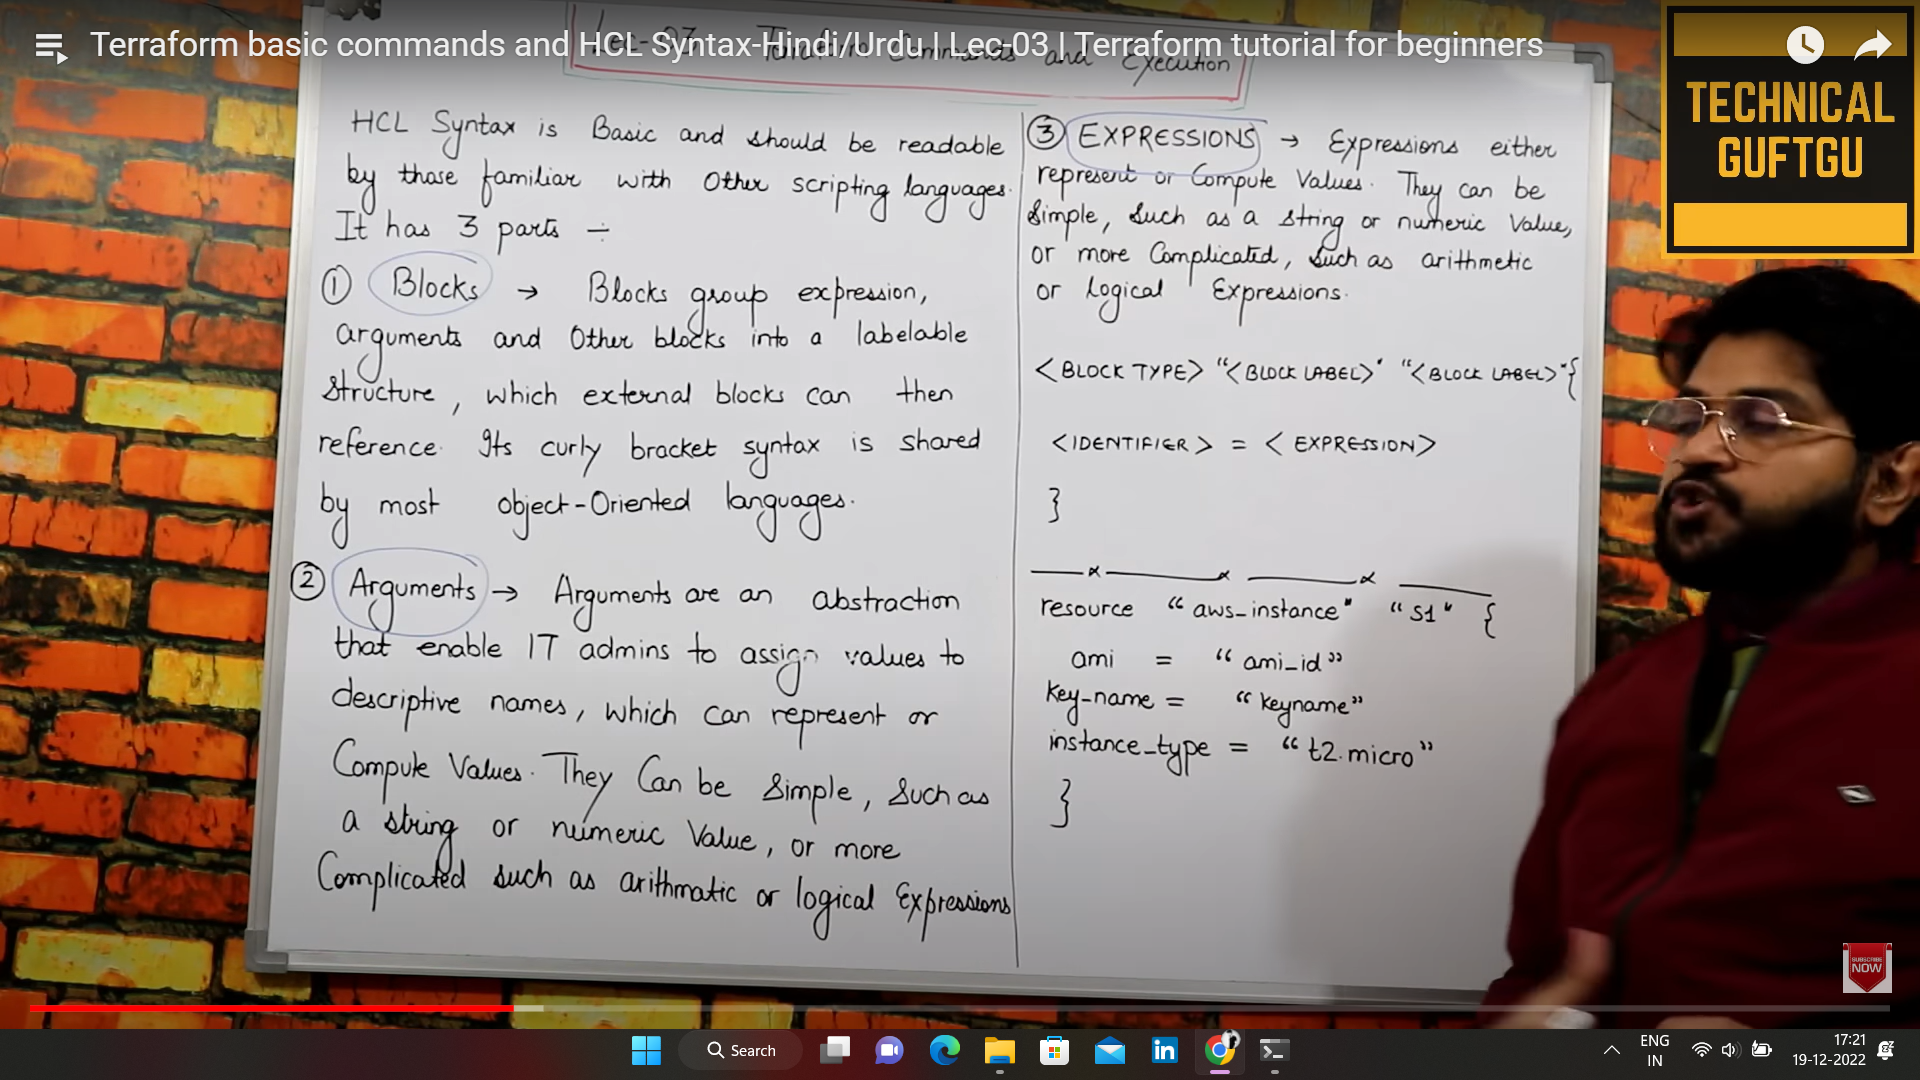 Terraform basic commands and HCL Syntax-Hindi/Urdu | Lec-03 | Terraform tutorial for beginners
Lec-03 Terraform Commands and Execution
TECHNICAL
GUFTGU
HCL Syntax is Basic and should be readable
by those familiar with Other scripting languages.
It has 3 parts ÷
① Blocks → Blocks group expression,
arguments and Other blocks into a labelable
Structure, which external blocks can then
reference. Its curly bracket syntax is shared
by most object-Oriented languages.
② Arguments → Arguments are an abstraction
that enable IT admins to assign values to
descriptive names, which can represent or
Compute Values. They Can be Simple, Such as
a string or numeric Value, or more
Complicated such as arithmatic or logical Expressions
③ EXPRESSIONS → Expressions either
represent or Compute Values. They can be
Simple, Such as a string or numeric Value,
or more Complicated, Such as arithmetic
or Logical Expressions.
<BLOCK TYPE> "<BLOCK LABEL>" "<BLOCK LABEL>" {
<IDENTIFIER> = < EXPRESSION>
}
resource "aws_instance" "S1" {
ami = "ami_id"
key_name = "keyname"
instance_type = "t2.micro"
}
SUBSCRIBE
NOW
Search
ENG
IN
17:21
19-12-2022